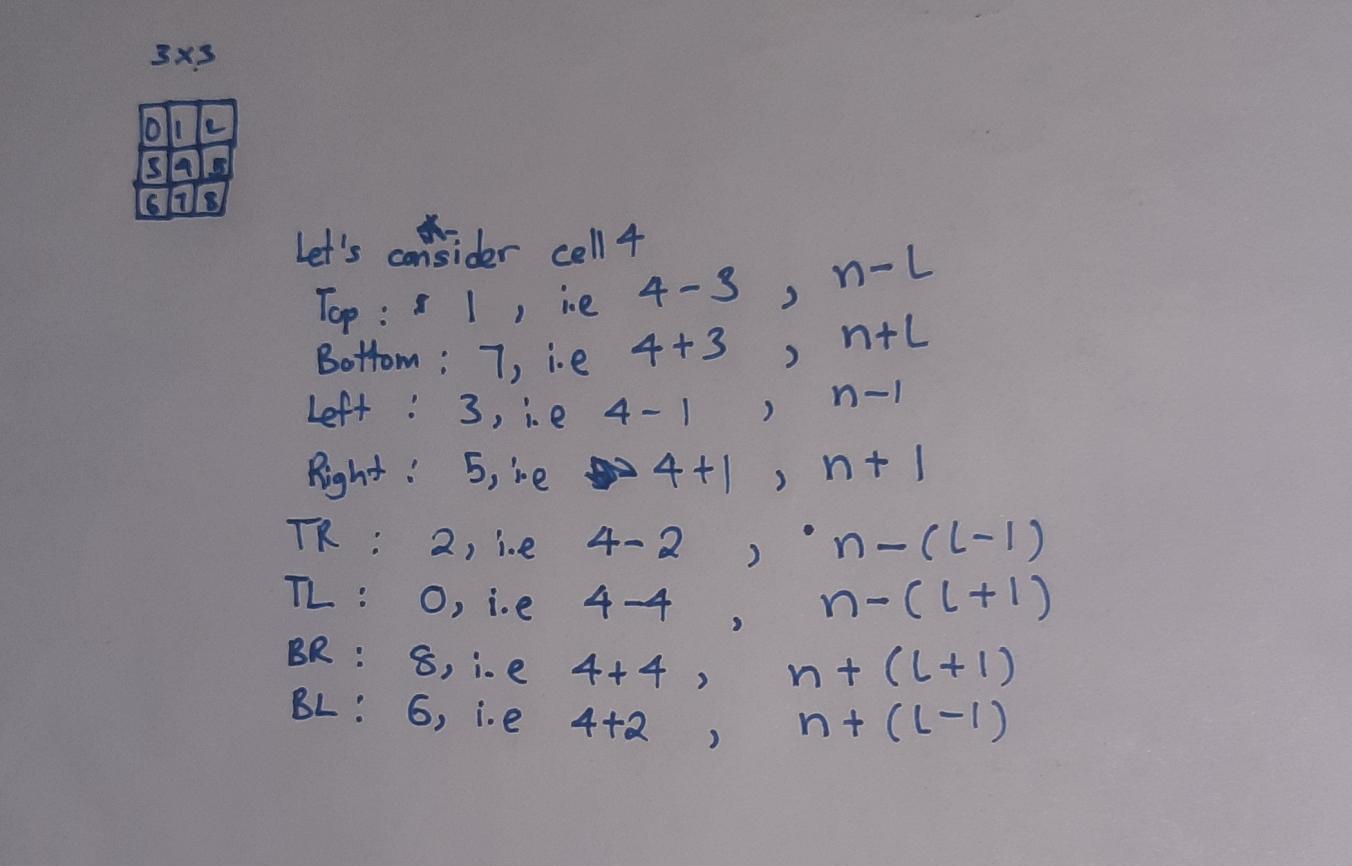 3x3
0 1 2
3 4 5
6 7 8
Let's consider cell 4
Top : 1 , i.e 4-3 , n-L
Bottom : 7, i.e 4+3 , n+L
Left : 3, i.e 4-1 , n-1
Right : 5, i.e 4+1 , n+1
TR : 2, i.e 4-2 , n-(L-1)
TL : 0, i.e 4-4 , n-(L+1)
BR : 8, i.e 4+4 , n+(L+1)
BL : 6, i.e 4+2 , n+(L-1)